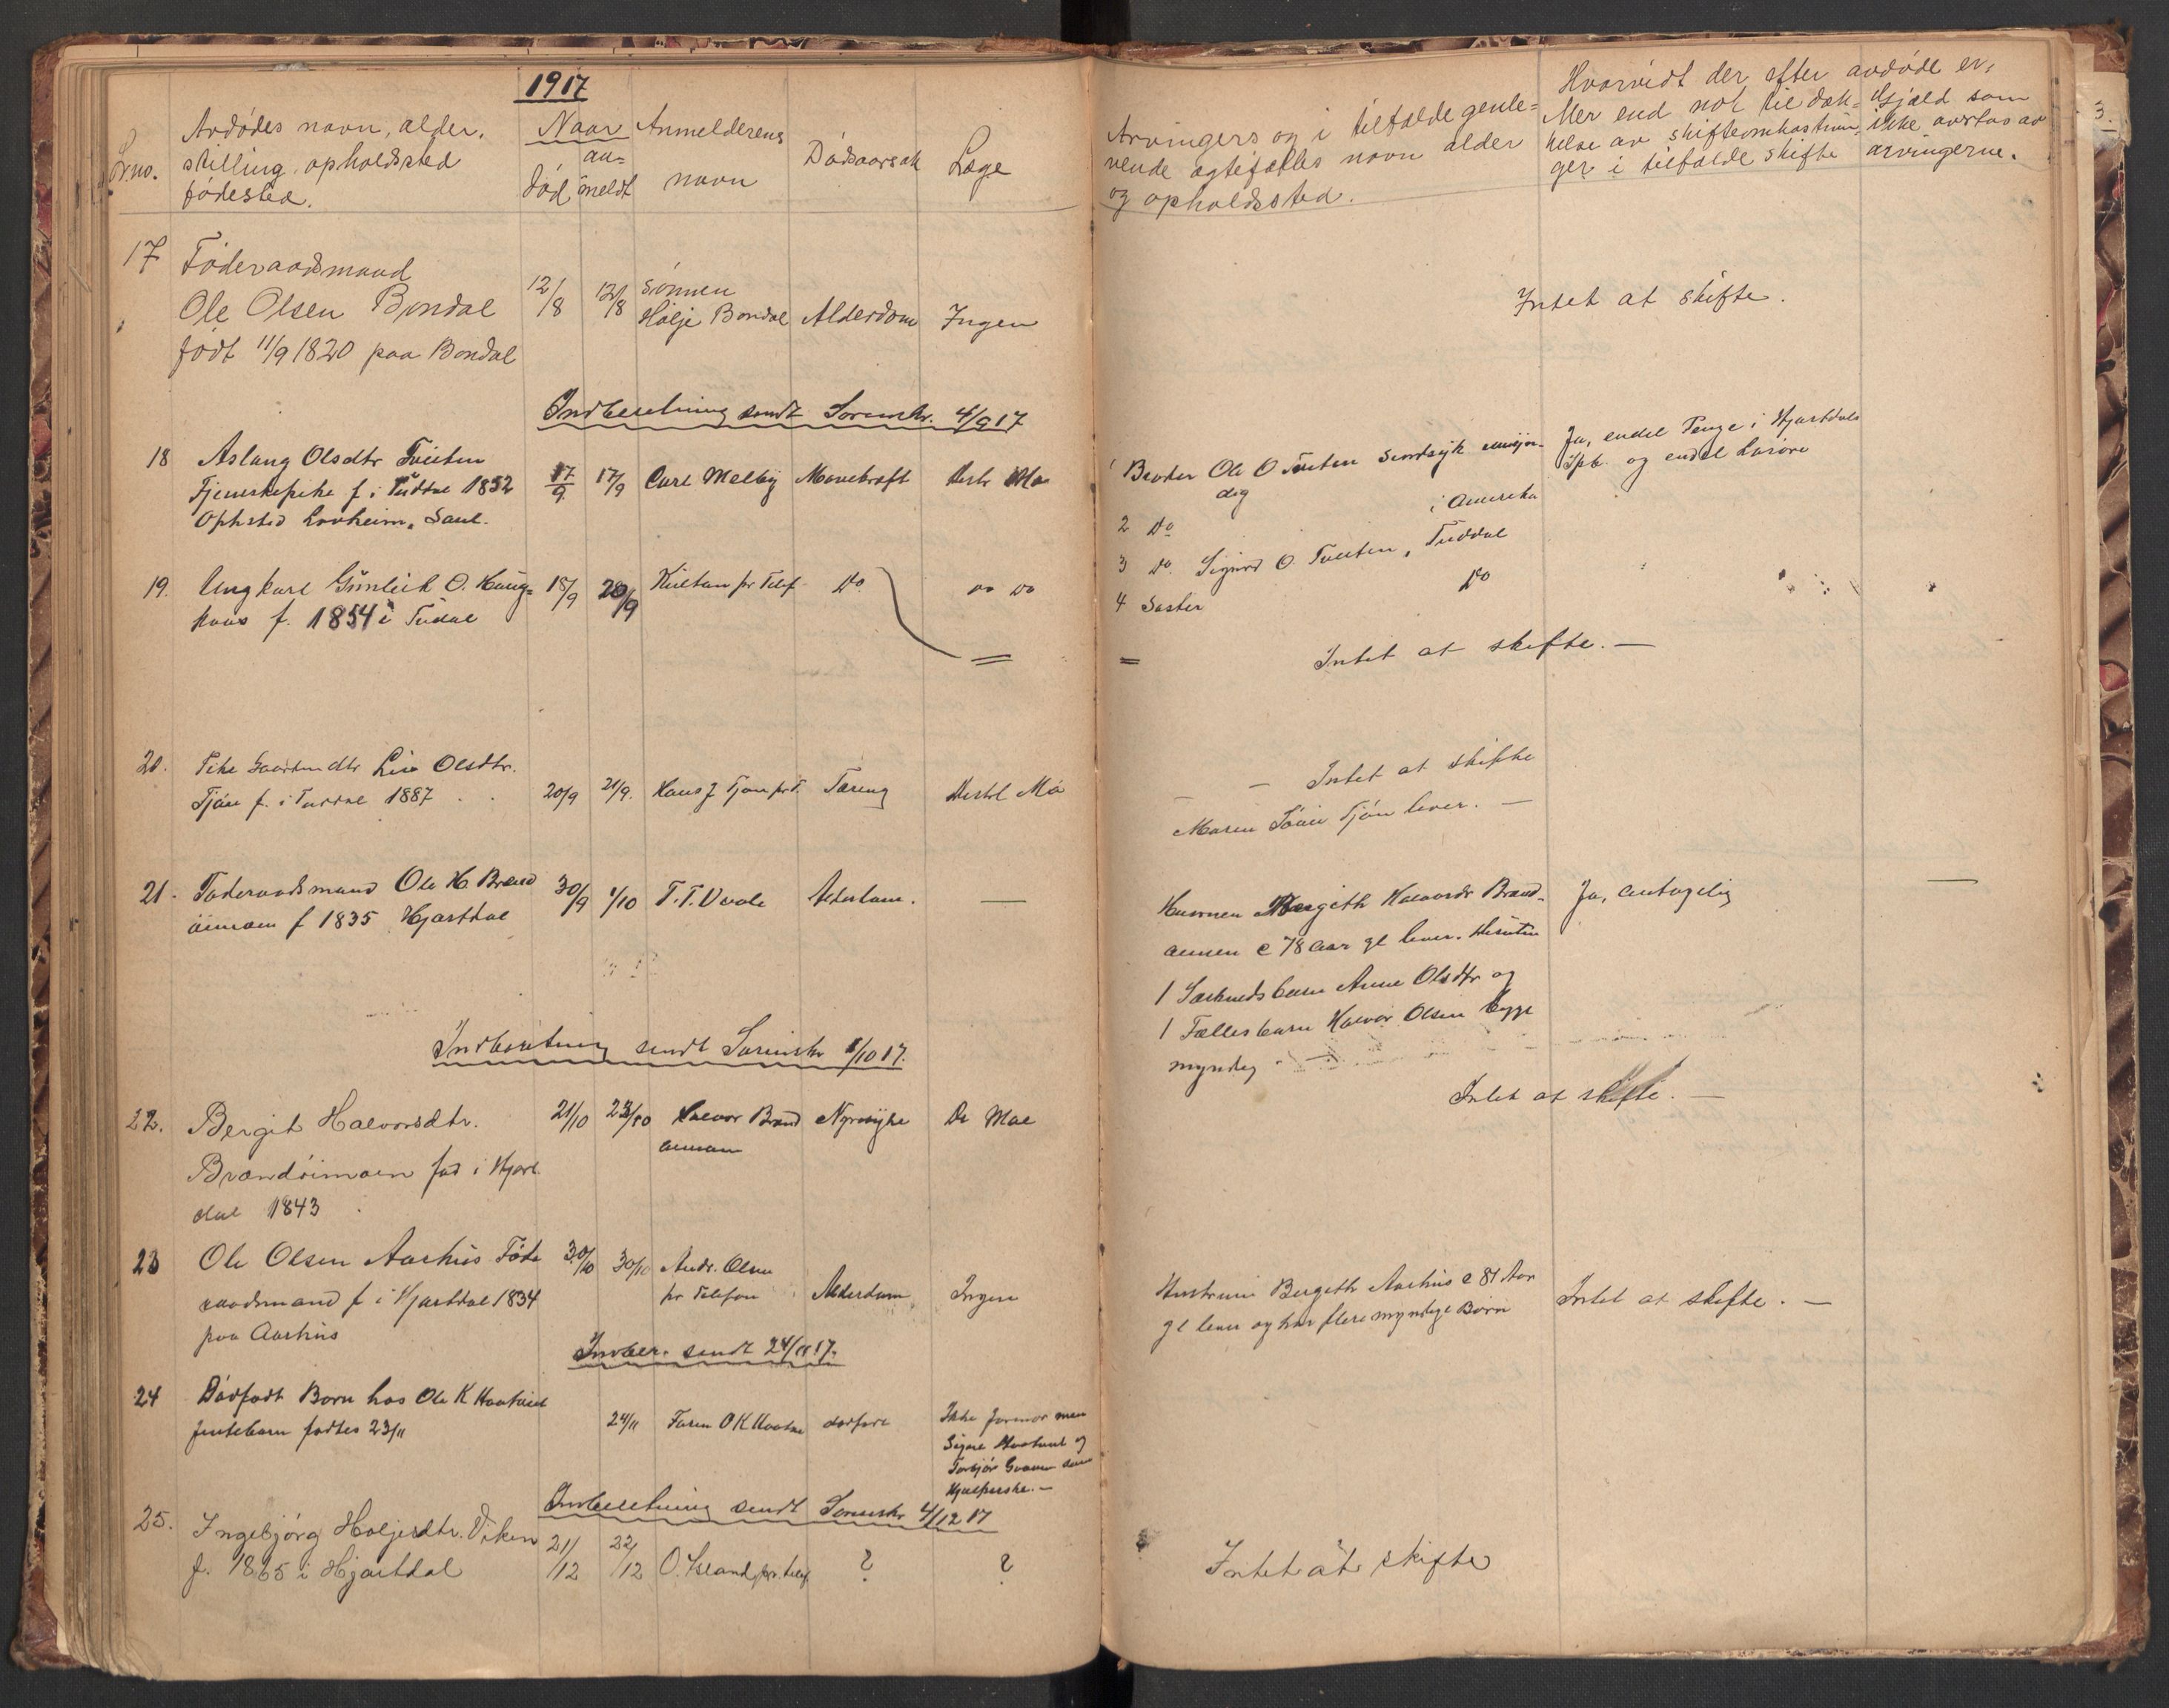 1917
Lr.no.
Avdødes navn, alder,
stilling, opholdssted
fødested.
Naar
død
an=
meldt
Anmelderens
navn
Dødsaarsak
Læge
17
Føderaadsmand
Ole Olsen Bondal
født 11/9 1820 paa Bondal
12/8
13/8
Sønnen
Halje Bondal
Alderdom
Ingen
Indberetning sendt Sorenskr. 4/9 17
18
Aslaug Olsdtr Tveiten
Tjenestepike f. i Tuddal 1852
Ophsted Lovheim, Saul.
17/9
17/9
Carl Melby
Mavekræft
19.
Ungkarl Gunleik O. Haug=
f. 1854 i Tudal
18/9
20/9
pr Telef
Do
Do Do
20.
Pike Liv Olsdtr.
Tjøn f. i Tuddal 1887
20/9
21/9.
Hans J Tjøn pr T.
Tæring
Distrl Mo
21.
Føderaadsmand Ole H. Brænd
øimoen f 1835 Hjartdal
30/9
1/10
T. T. Vaale
Alderdom.
—
Indberetning sendt Sorenskr 1/10 17.
22.
Bergit Halvorsdtr.
Brændøimoen fød i Hjart
dal 1843
21/10
23/10
Halvor Brænd
Nyresyke
Dr Moe
23
Ole Olsen Aarhus Føde
raadsmand f i Hjartdal 1834
paa Aarhus
30/10
30/10
Andr. Olsen
pr Telefon
Alderdom
Ingen
Indber. sendt 24/11 17.
24
Dødfødt Barn hos Ole K
Jentebarn fødtes 23/11
24/11
Faren O K
dødfødt
Ikke Jormor men
Signe og
Torbjør som
Hjælperske. —
Indberetning sendt Sorenskr 4/12 17
25.
Ingebjørg Haljesdtr. Viken
f. 1865 i Hjartdal
21/12
22/12
O. Island pr. telef
?
?
Arvingers og i tilfælde genle=
vende ægtefælles navn alder
og opholdssted.
Hvorvidt der efter avdøde er,
Mer end nok til dæk=
kelse av skifteomkostnin
ger i tilfælde skifte
Gjæld som
ikke overtas av
arvingerne.
3.
Intet at skifte.
1 Broder Ole O Tveiten Sindssyk umyn=
dig
2 Do i Amerika
3 Do. Sigurd O. Tveiten, Tuddal
4 Søster Do
Ja, endel Penge i Hjartdals
Spb. og endel Løsøre
= Intet at skifte. —
— Intet at skifte
Moren Tjøn lever. —
Konen Bergith Halvorsdr Brænd-
c 78 Aar gl lever. Desuten
1 Særkuldsbarn Anne Olsdtr og
1 Fællesbarn Halvor Olsen begge
myndig
Ja, antagelig
—
Intet at skifte. —
Hustruen Bergith Aarhus c 81 Aar
gl lever og har flere myndige Børn
Intet at skifte. —
Intet at skifte